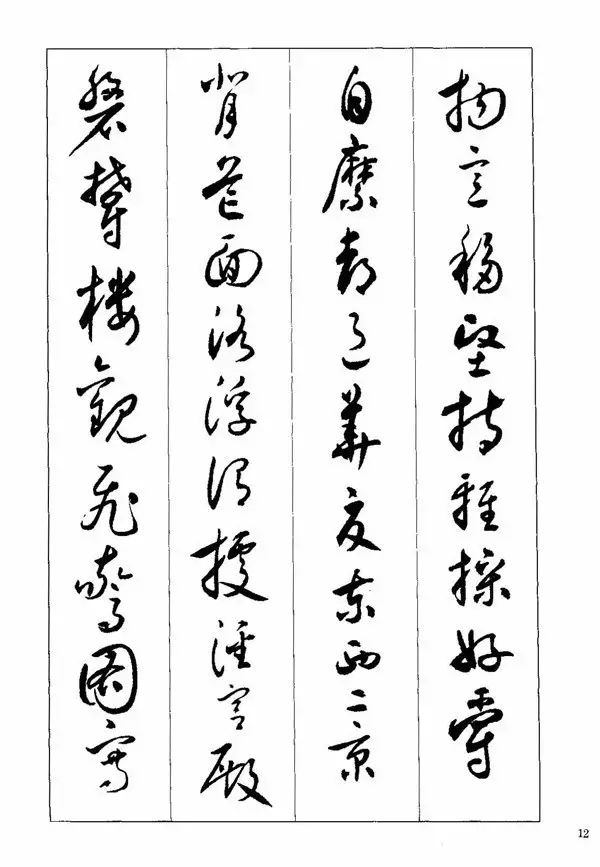 物意移堅持雅操好爵
自縻都邑華夏東西二京
背芒面洛浮渭據涇宮殿
磐鬱樓觀飛驚圖寫
12